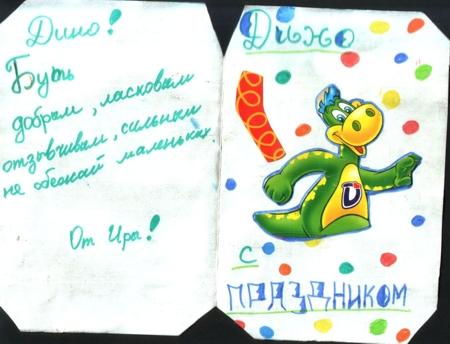 Дино!
Буть
добрым, ласковым
отзывчивым, сильным
не обежай маленьких
От Иры!
Дино
D
С
ПРАЗДНИКОМ